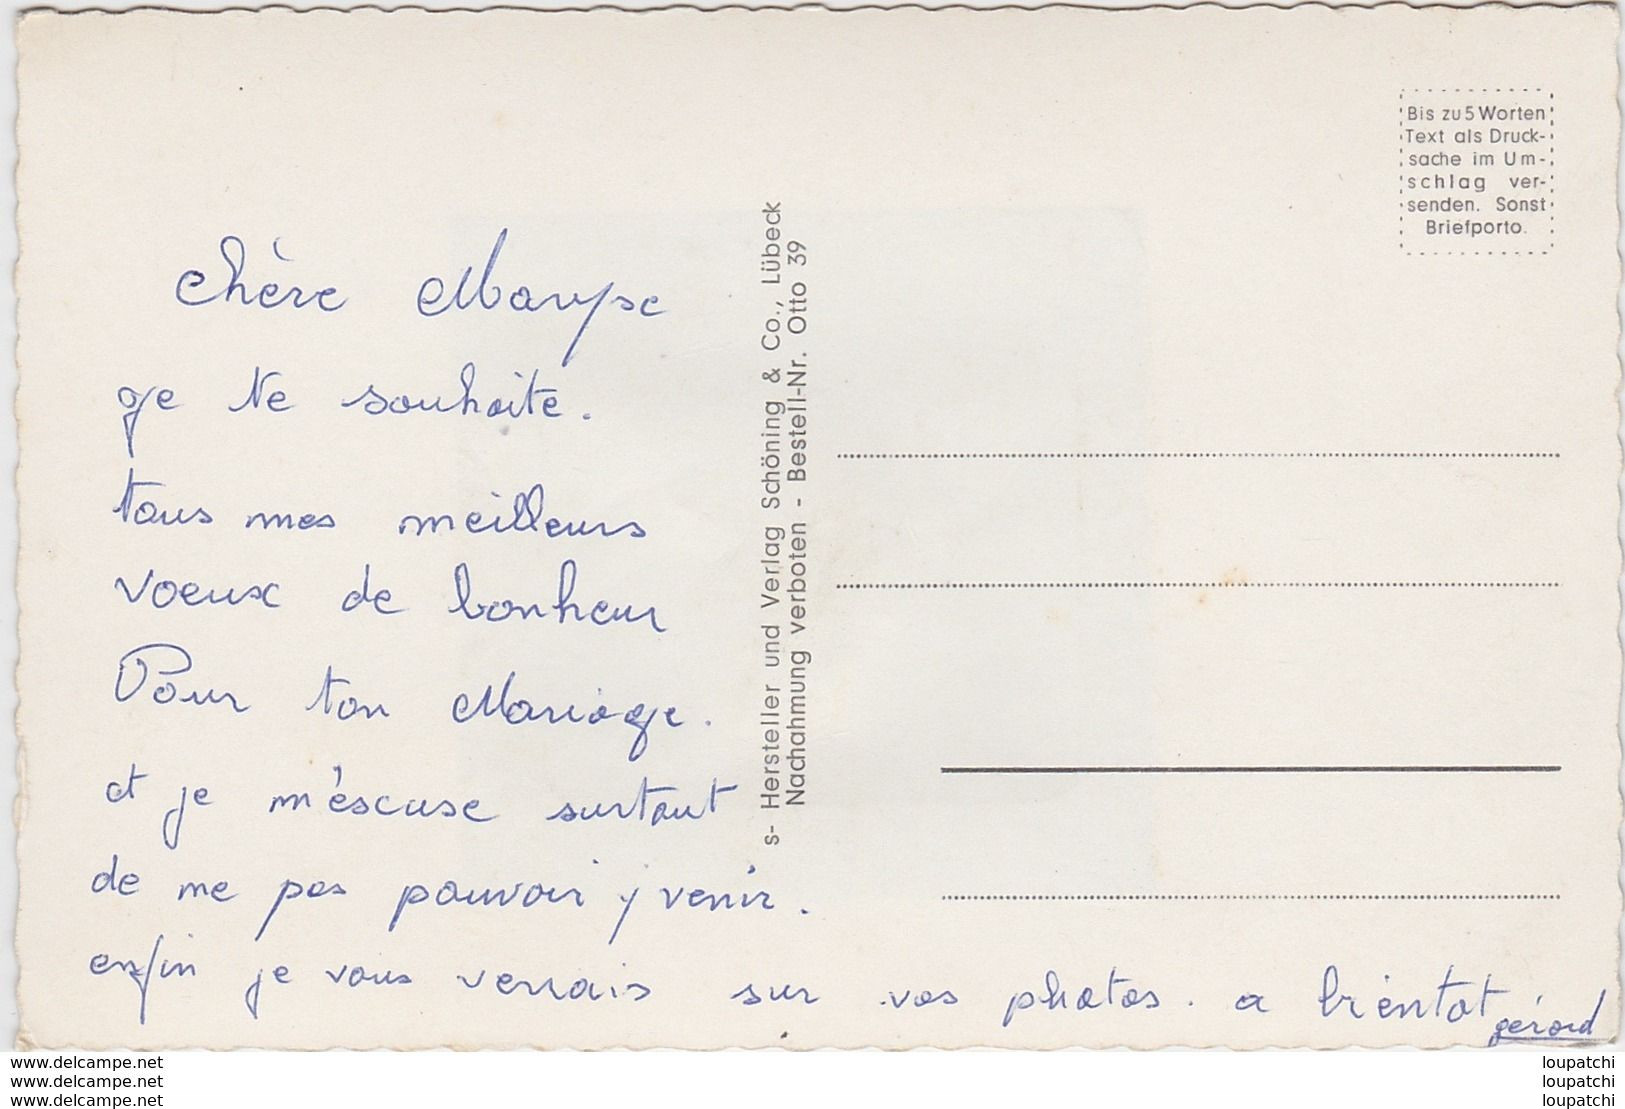 Bis zu 5 Worten
Text als Druck-
sache im Um-
schlag ver-
senden. Sonst
Briefporto.
chère Maryse
je te souhaite.
tous mes meilleurs
voeux de bonheur
Pour ton Mariage.
et je m'éscuse surtout
de me pas pouvoir y venir.
enfin je vous verrais sur vos photos. a bientot
gérard
s- Hersteller und Verlag Schöning & Co., Lübeck
Nachahmung verboten - Bestell-Nr. Otto 39
www.delcampe.net
www.delcampe.net
www.delcampe.net
loupatchi
loupatchi
loupatchi